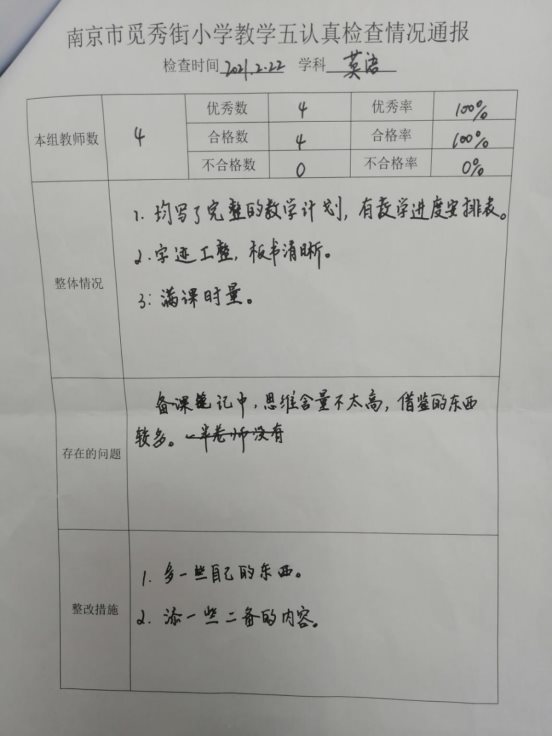 南京市觅秀街小学教学五认真检查情况通报
检查时间 2021.2.22 学科 英语
本组教师数 4 优秀数 4 优秀率 100%
合格数 4 合格率 100%
不合格数 0 不合格率 0%
整体情况
1. 均写了完整的教学计划，有教学进度安排表。
2. 字迹工整，板书清晰。
3: 满课时量。
存在的问题
备课笔记中，思维含量不太高，借鉴的东西
较多。
整改措施
1. 多一些自己的东西。
2. 添一些二备的内容。